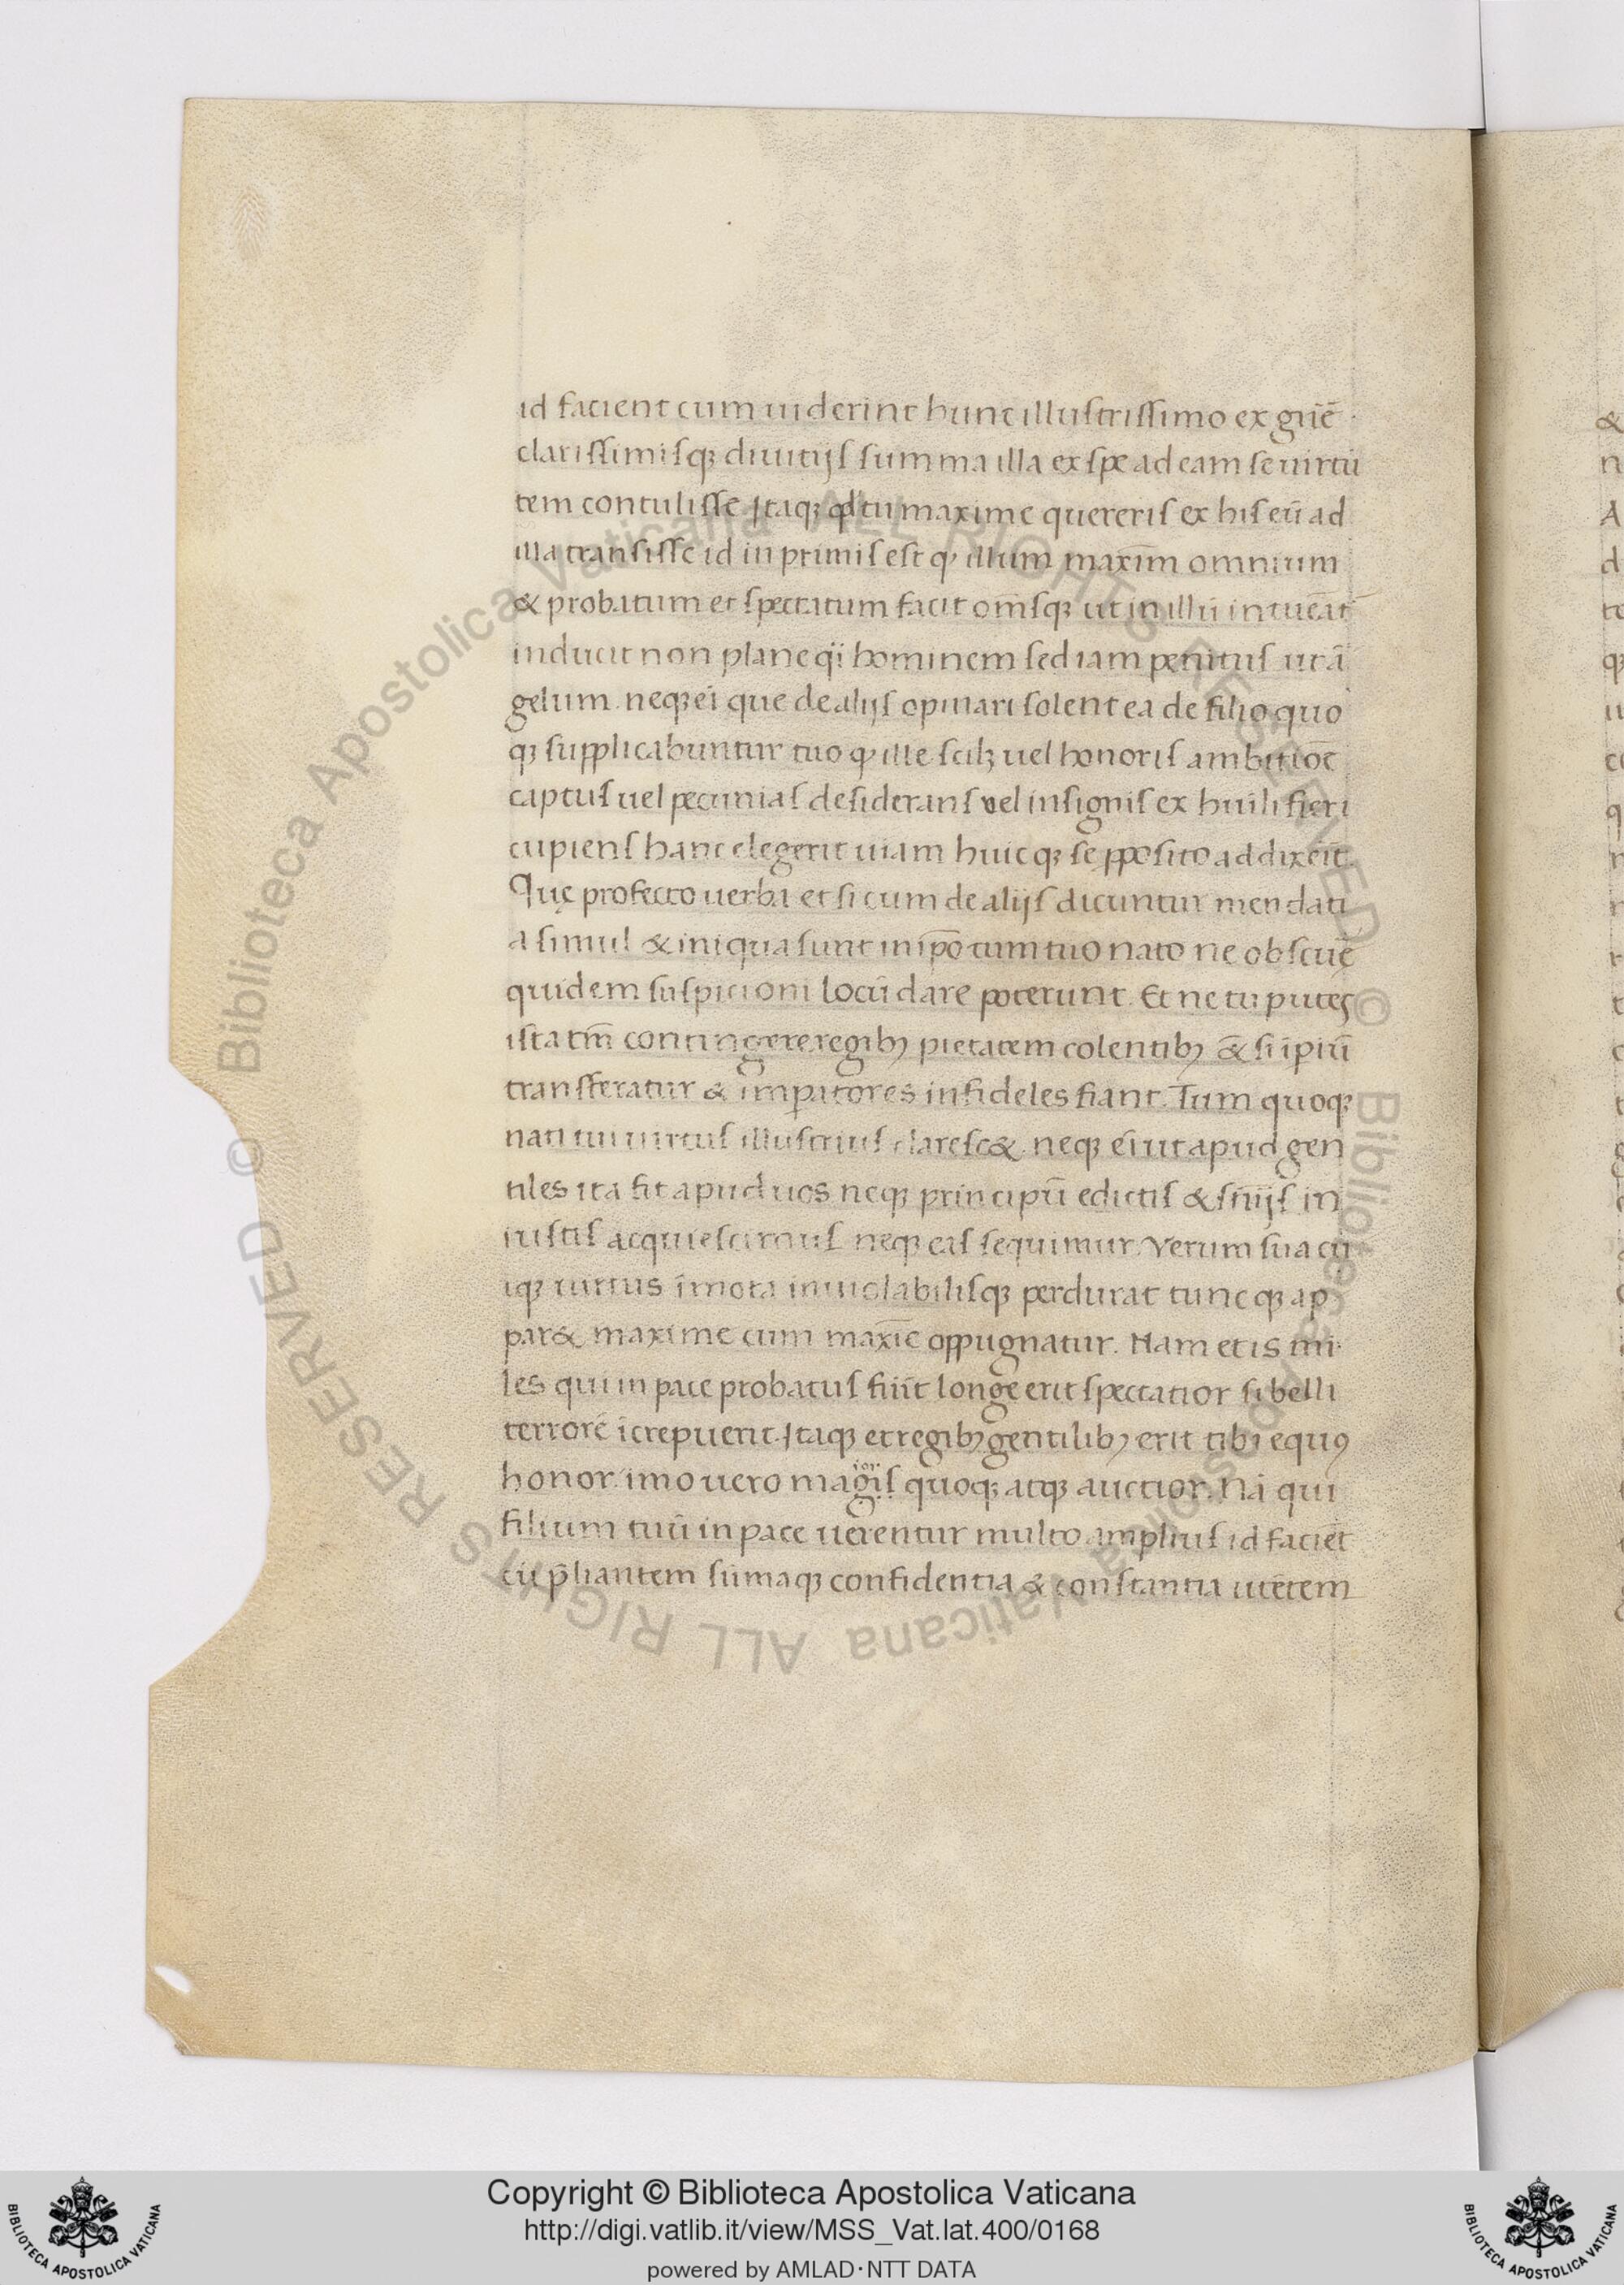 id facient cum uiderint hunc illustrissimo ex gñe
clarissimisqꝫ diuitijs summa illa ex spe ad eam se uirtu
tem contulisse Itaqꝫ qđ tu maxime quereris ex his eū ad
illa transisse id in primis est ꝙ illum maxīm omnium
& probatum et spectatum facit om̄sqꝫ ut in illū intueāt
inducit non plane q̄i hominem sed iam penitus ut ā
gelum neqꝫ ei que de alijs opinari solent ea de filio quo
qꝫ supplicabuntur tuo ꝙ ille scilꝫ uel honoris ambitiōe
captus uel pecunias desiderans vel insignis ex huili fieri
cupiens hanc elegerit uiam huicqꝫ se ꝓposito addixeīt
Quę profecto uerba et si cum de alijs dicuntur mendati
a simul & iniqua sunt in ip̄o tum tuo nato ne obscuȩ
quidem suspicioni locū dare poterunt. Et ne tu putes
ista tm̄ contingere regibꝫ pietatem colentibꝫ & si ipiū
transferatur & imꝑatores infideles fiant. Tum quoqꝫ
nati tui uirtus illustrius claresc& neqꝫ ei ut apud gen
tiles ita fit apud uos neqꝫ principū edictis & sn̄ijs in
iustis acquiescimus neqꝫ eas sequimur. Verum sua cu
iqꝫ uirtus īmota inuiolabilisqꝫ perdurat tuncqꝫ ap
par& maxime cum maxīe oppugnatur. Nam et is mi
les qui in pace probatus fuīt longe erit spectatior si belli
terrore īcrepuerit. Itaqꝫ et regibꝫ gentilibꝫ erit tibi equꝰ
honor imo uero magis quoqꝫ atqꝫ auctior. Nā qui
ior
filium tuū in pace uerentur multo amplius id faciēt
cū p̄liantem sūmaqꝫ confidentia & constantia utētem
© Biblioteca Apostolica Vaticana ALL RIGHTS RESERVED © Biblioteca Apostolica Vaticana ALL RIGHTS RESERVED
Copyright © Biblioteca Apostolica Vaticana
http://digi.vatlib.it/view/MSS_Vat.lat.400/0168
powered by AMLAD·NTT DATA
BIBLIOTECA APOSTOLICA VATICANA
BIBLIOTECA APOSTOLICA VATICANA